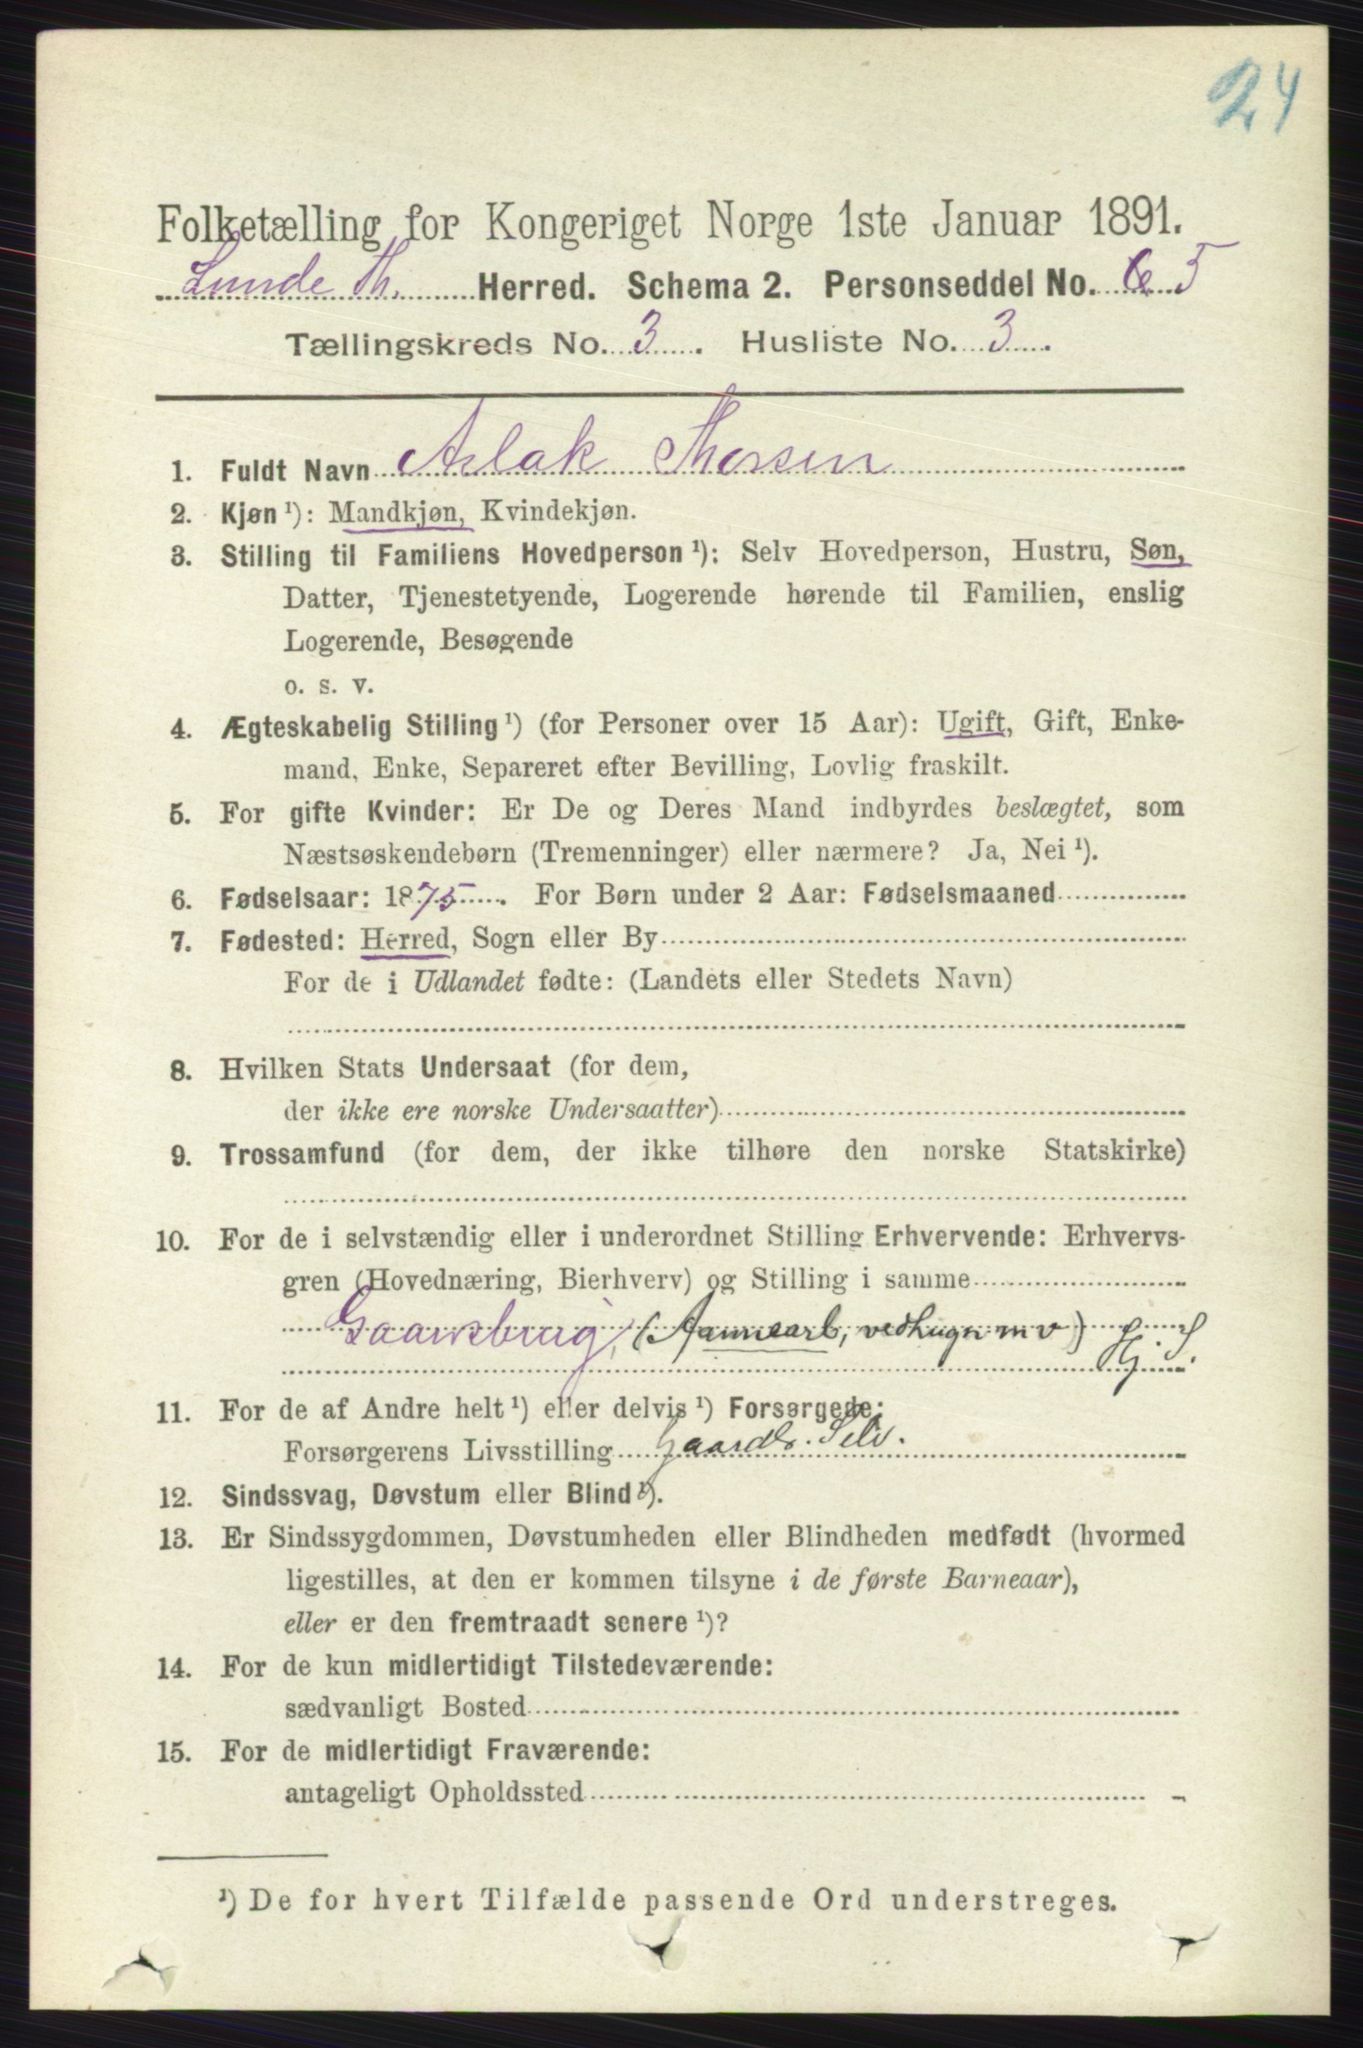 24
Folketælling for Kongeriget Norge 1ste Januar 1891.
Lunde Th. Herred. Schema 2. Personseddel No. 5
Tællingskreds No. 3. Husliste No. 3.
1. Fuldt Navn Aslak Thorsen
2. Kjøn ¹): Mandkjøn, Kvindekjøn.
3. Stilling til Familiens Hovedperson ¹): Selv Hovedperson, Hustru, Søn,
Datter, Tjenestetyende, Logerende hørende til Familien, enslig
Logerende, Besøgende
o. s. v.
4. Ægteskabelig Stilling ¹) (for Personer over 15 Aar): Ugift, Gift, Enke-
mand, Enke, Separeret efter Bevilling, Lovlig fraskilt.
5. For gifte Kvinder: Er De og Deres Mand indbyrdes beslægtet, som
Næstsøskendebørn (Tremenninger) eller nærmere? Ja, Nei ¹).
6. Fødselsaar: 1875. For Børn under 2 Aar: Fødselsmaaned
7. Fødested: Herred, Sogn eller By
For de i Udlandet fødte: (Landets eller Stedets Navn)
8. Hvilken Stats Undersaat (for dem,
der ikke ere norske Undersaatter)
9. Trossamfund (for dem, der ikke tilhøre den norske Statskirke)
10. For de i selvstændig eller i underordnet Stilling Erhvervende: Erhvervs-
gren (Hovednæring, Bierhverv) og Stilling i samme
Gaardsbrug, (Aannearb, vedhugn m v) Hj. S.
11. For de af Andre helt ¹) eller delvis ¹) Forsørgede:
Forsørgerens Livsstilling Gaardb. Selv.
12. Sindssvag, Døvstum eller Blind ¹).
13. Er Sindssygdommen, Døvstumheden eller Blindheden medfødt (hvormed
ligestilles, at den er kommen tilsyne i de første Barneaar),
eller er den fremtraadt senere ¹)?
14. For de kun midlertidigt Tilstedeværende:
sædvanligt Bosted
15. For de midlertidigt Fraværende:
antageligt Opholdssted
¹) De for hvert Tilfælde passende Ord understreges.